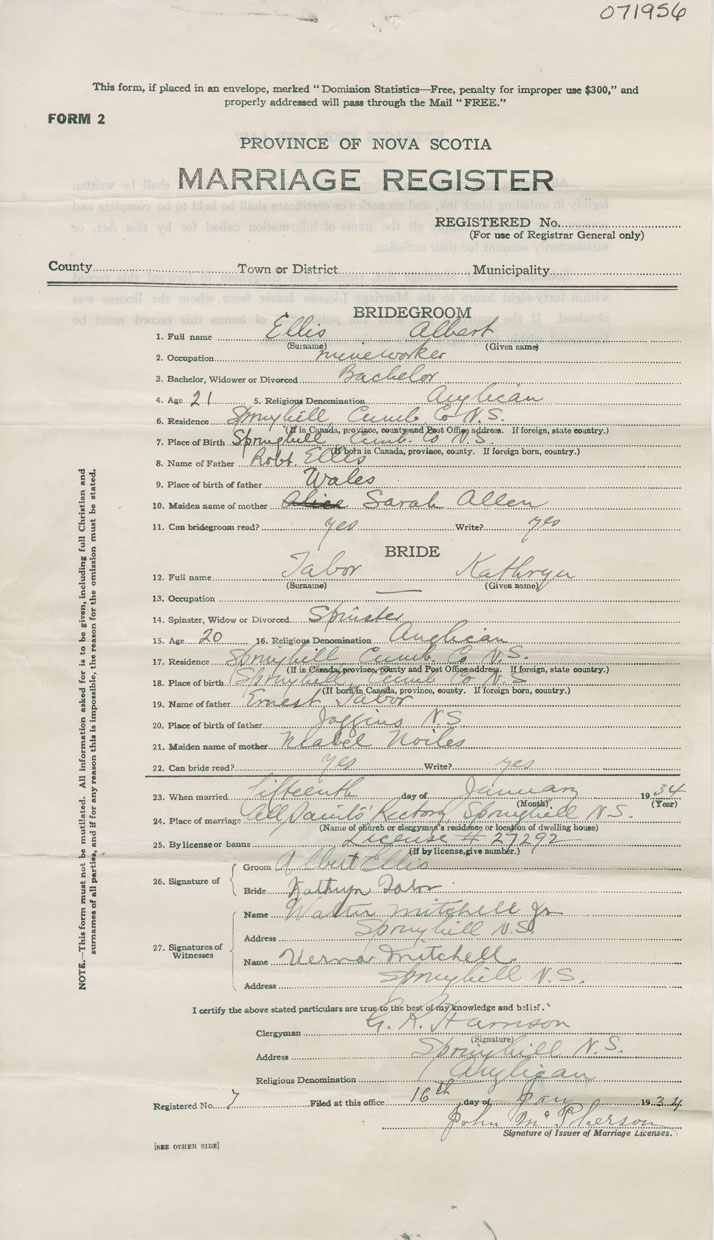 071956
This form, if placed in an envelope, marked "Dominion Statistics—Free, penalty for improper use $300," and
properly addressed will pass through the Mail "FREE."
FORM 2
PROVINCE OF NOVA SCOTIA
MARRIAGE REGISTER
REGISTERED No.
(For use of Registrar General only)
County Town or District Municipality
BRIDEGROOM
1. Full name Ellis Albert
(Surname) (Given name)
2. Occupation mineworker
3. Bachelor, Widower or Divorced Bachelor
4. Age 21 5. Religious Denomination Anglican
6. Residence Springhill Cumb Co N.S.
(If in Canada, province, county and Post Office address. If foreign, state country.)
7. Place of Birth Springhill Cumb. Co N.S.
(If born in Canada, province, county. If foreign born, country.)
8. Name of Father Robt Ellis
9. Place of birth of father Wales
10. Maiden name of mother Alice Sarah Allen
11. Can bridegroom read? yes Write? yes
BRIDE
12. Full name Tabor Kathryn
(Surname) (Given name)
13. Occupation —
14. Spinster, Widow or Divorced Spinster
15. Age 20 16. Religious Denomination Anglican
17. Residence Springhill Cumb Co N.S.
(If in Canada, province, county and Post Office address. If foreign, state country.)
18. Place of birth Springhill Cumb Co N.S
(If born in Canada, province, county. If foreign born, country.)
19. Name of father Ernest Tabor
20. Place of birth of father Joggins N.S
21. Maiden name of mother Mabel Noiles
22. Can bride read? yes Write? yes
23. When married fifteenth day of January 1934
(Month) (Year)
24. Place of marriage All Saints' Rectory, Springhill N.S.
(Name of church or clergyman's residence or location of dwelling house)
25. By license or banns License # 27292
(If by license, give number.)
26. Signature of
Groom Albert Ellis
Bride Kathryn Tabor
27. Signatures of Witnesses
Name Walter Mitchell Jr
Address Springhill N.S.
Name Verna Mitchell
Address Springhill N.S.
I certify the above stated particulars are true to the best of my knowledge and belief.
Clergyman G. R. Harrison
(Signature)
Address Springhill N.S.
Religious Denomination Anglican
Registered No. 7 Filed at this office 16th day of Jany 1934
John McPherson
Signature of Issuer of Marriage Licenses.
[SEE OTHER SIDE]
NOTE.—This form must not be mutilated. All information asked for is to be given, including full Christian and
surnames of all parties, and if for any reason this is impossible, the reason for the omission must be stated.